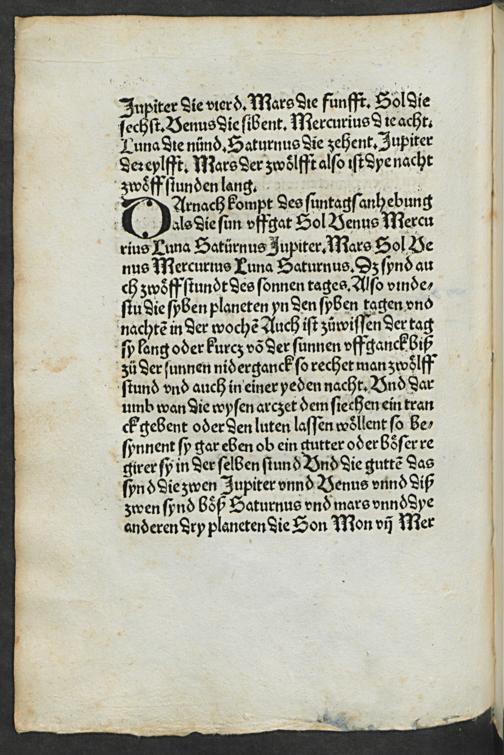 Jupiter die vierd. Mars die funfft. Sol die
sechst. Venus die sibent. Mercurius die acht.
Luna die nünd. Saturnus die zehent. Jupiter
der eylfft. Mars der zwölfft also ist dye nacht
zwöff stunden lang.
DArnach kompt des suntags anhebung
als die sun vffgat Sol Venus Mercu
rius Luna Satürnus Jupiter. Mars Sol Ve
nus Mercurius Luna Saturnus. Dz synd au
ch zwöff stundt des sonnen tages. Also vinde⸗
stu die syben planeten yn den syben tagen vnd
nachtē in der wochē Auch ist zů wissen der tag
sy lang oder kurcz vō der sunnen vffganck biß
zů der sunnen niderganck so rechet man zwölff
stund vnd auch in einer yeden nacht. Vnd dar
umb wan die wysen arczet dem siechen ein tran
ck gebent oder den luten lassen wöllent so be⸗
synnent sy gar eben ob ein gutter oder böser re
girer sy in der selben stund Vnd die guttē das
synd die zwen Jupiter vnnd Venus vnnd diß
zwen synd böß Saturnus vnd mars vnnd dye
anderen dry planeten die Son Mon vn̄ Mer